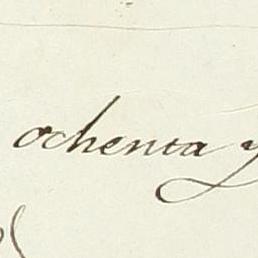 ochenta y